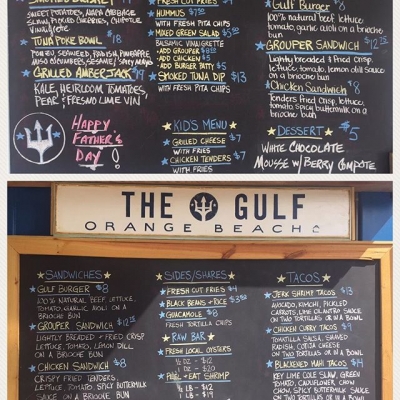 SWEET POTATOES, NAPA CABBAGE
SLAW, PICKLED CHERRIES, CHIPOTLE
VINAIGRETTE
TUNA POKE BOWL $18
PONZU, SEAWEED, RADISH, PINEAPPLE,
MISO CUCUMBERS, SESAME, SPICY MAYO
GRILLED AMBERJACK $19
KALE, HEIRLOOM TOMATOES,
PEAR & FRESNO LIME VIN
HAPPY
FATHER'S
DAY!
FRESH CUT FRIES $4
HUMMUS $7
WITH FRESH PITA CHIPS
MIXED GREEN SALAD $5
BALSAMIC VINAIGRETTE
ADD GROUPER $8
ADD CHICKEN $5
ADD BURGER PATTY $5
SMOKED TUNA DIP $13
WITH FRESH PITA CHIPS
KIDS MENU
GRILLED CHEESE $7
WITH FRIES
CHICKEN TENDERS $7
WITH FRIES
Gulf Burger $8
100% natural beef, lettuce,
tomato, garlic aioli on a
brioche bun
GROUPER SANDWICH $12.75
Lightly breaded & fried crisp,
lettuce, tomato, lemon dill sauce
on a brioche bun
Chicken Sandwich $8
Tenders fried crisp, lettuce,
tomato, spicy buttermilk on a
brioche bun
DESSERT $5
WHITE CHOCOLATE
MOUSSE W/ BERRY COMPOTE
THE GULF
ORANGE BEACH
SANDWICHES
GULF BURGER $8
100% NATURAL BEEF, LETTUCE,
TOMATO, GARLIC AIOLI ON A
BRIOCHE BUN
GROUPER SANDWICH $12.75
LIGHTLY BREADED & FRIED CRISP
LETTUCE, TOMATO, LEMON DILL
ON A BRIOCHE BUN
CHICKEN SANDWICH $8
CRISPY FRIED TENDERS,
LETTUCE, TOMATO, SPICY BUTTERMILK
SIDES/SHARES
FRESH CUT FRIES $4
BLACK BEANS + RICE $3.50
GUACAMOLE $8
FRESH TORTILLA CHIPS
RAW BAR
FRESH LOCAL OYSTERS
1/2 DZ - $12
DZ - $20
PEEL + EAT SHRIMP
1/2 LB - $12
1 LB - $19
TACOS
JERK SHRIMP TACOS $13
AVOCADO, KIMCHI, PICKLED
CARROTS, LIME CILANTRO SAUCE
ON TWO TORTILLAS OR IN A BOWL
CHICKEN CURRY TACOS $9
TOMATILLO SALSA, SHAVED
RADISH, COTIJA CHEESE
ON TWO TORTILLAS OR IN A BOWL
BLACKENED MAHI TACOS $14
KEY LIME COLE SLAW, GREEN
TOMATO, CAULIFLOWER CHOW
CHOW, SPICY BUTTERMILK SAUCE
ON TWO TORTILLAS OR IN A BOWL